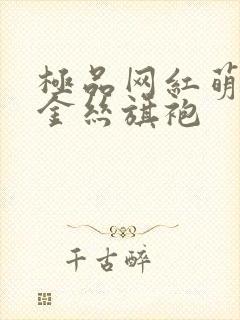 極品网紅萌
金丝旗袍
千古醉